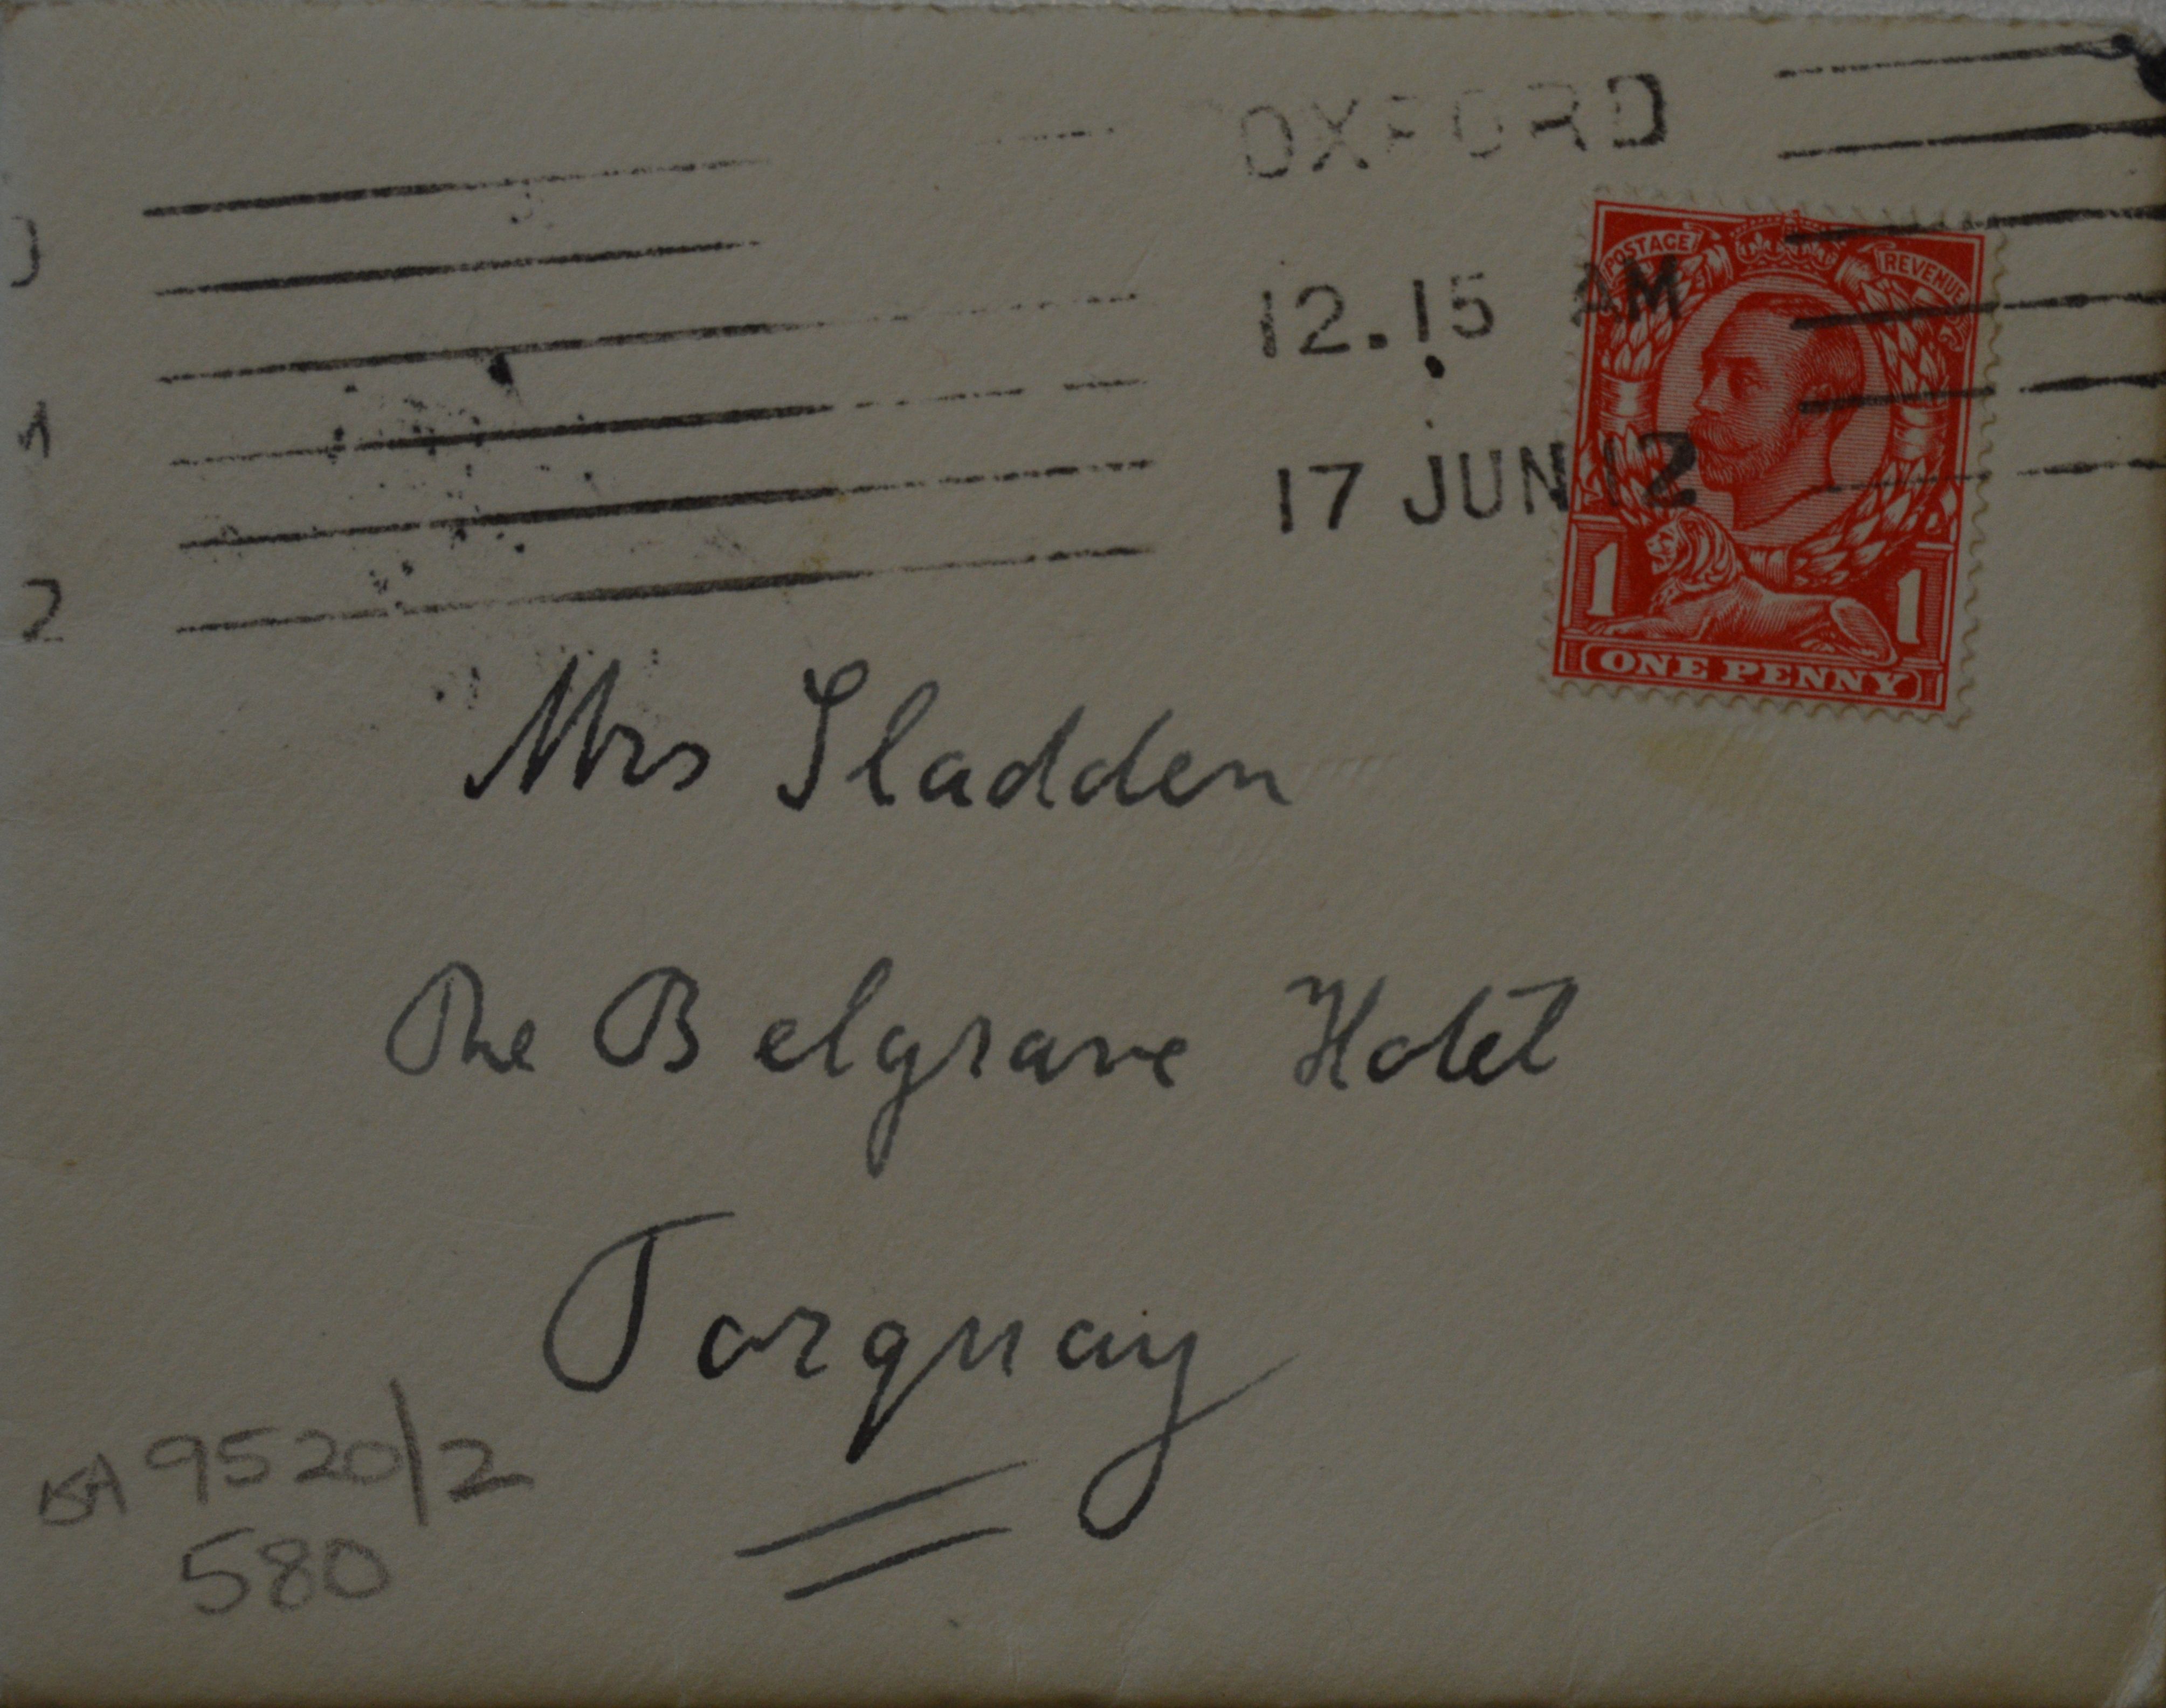 OXFORD
12.15 AM
17 JUN 12
POSTAGE REVENUE
1 1
ONE PENNY
Mrs Sladden
The Belgrave Hotel
Torquay
9520/2
580